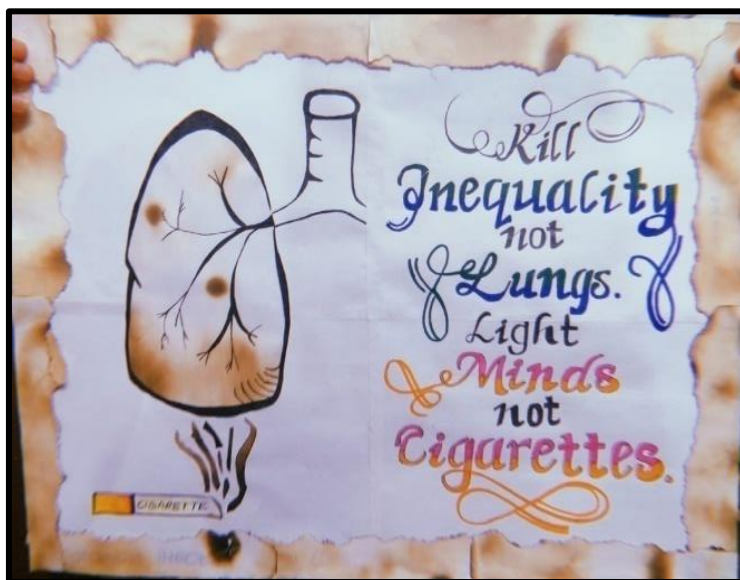 Kill
Inequality
not
Lungs.
Light
Minds
not
Cigarettes.
CIGARETTE